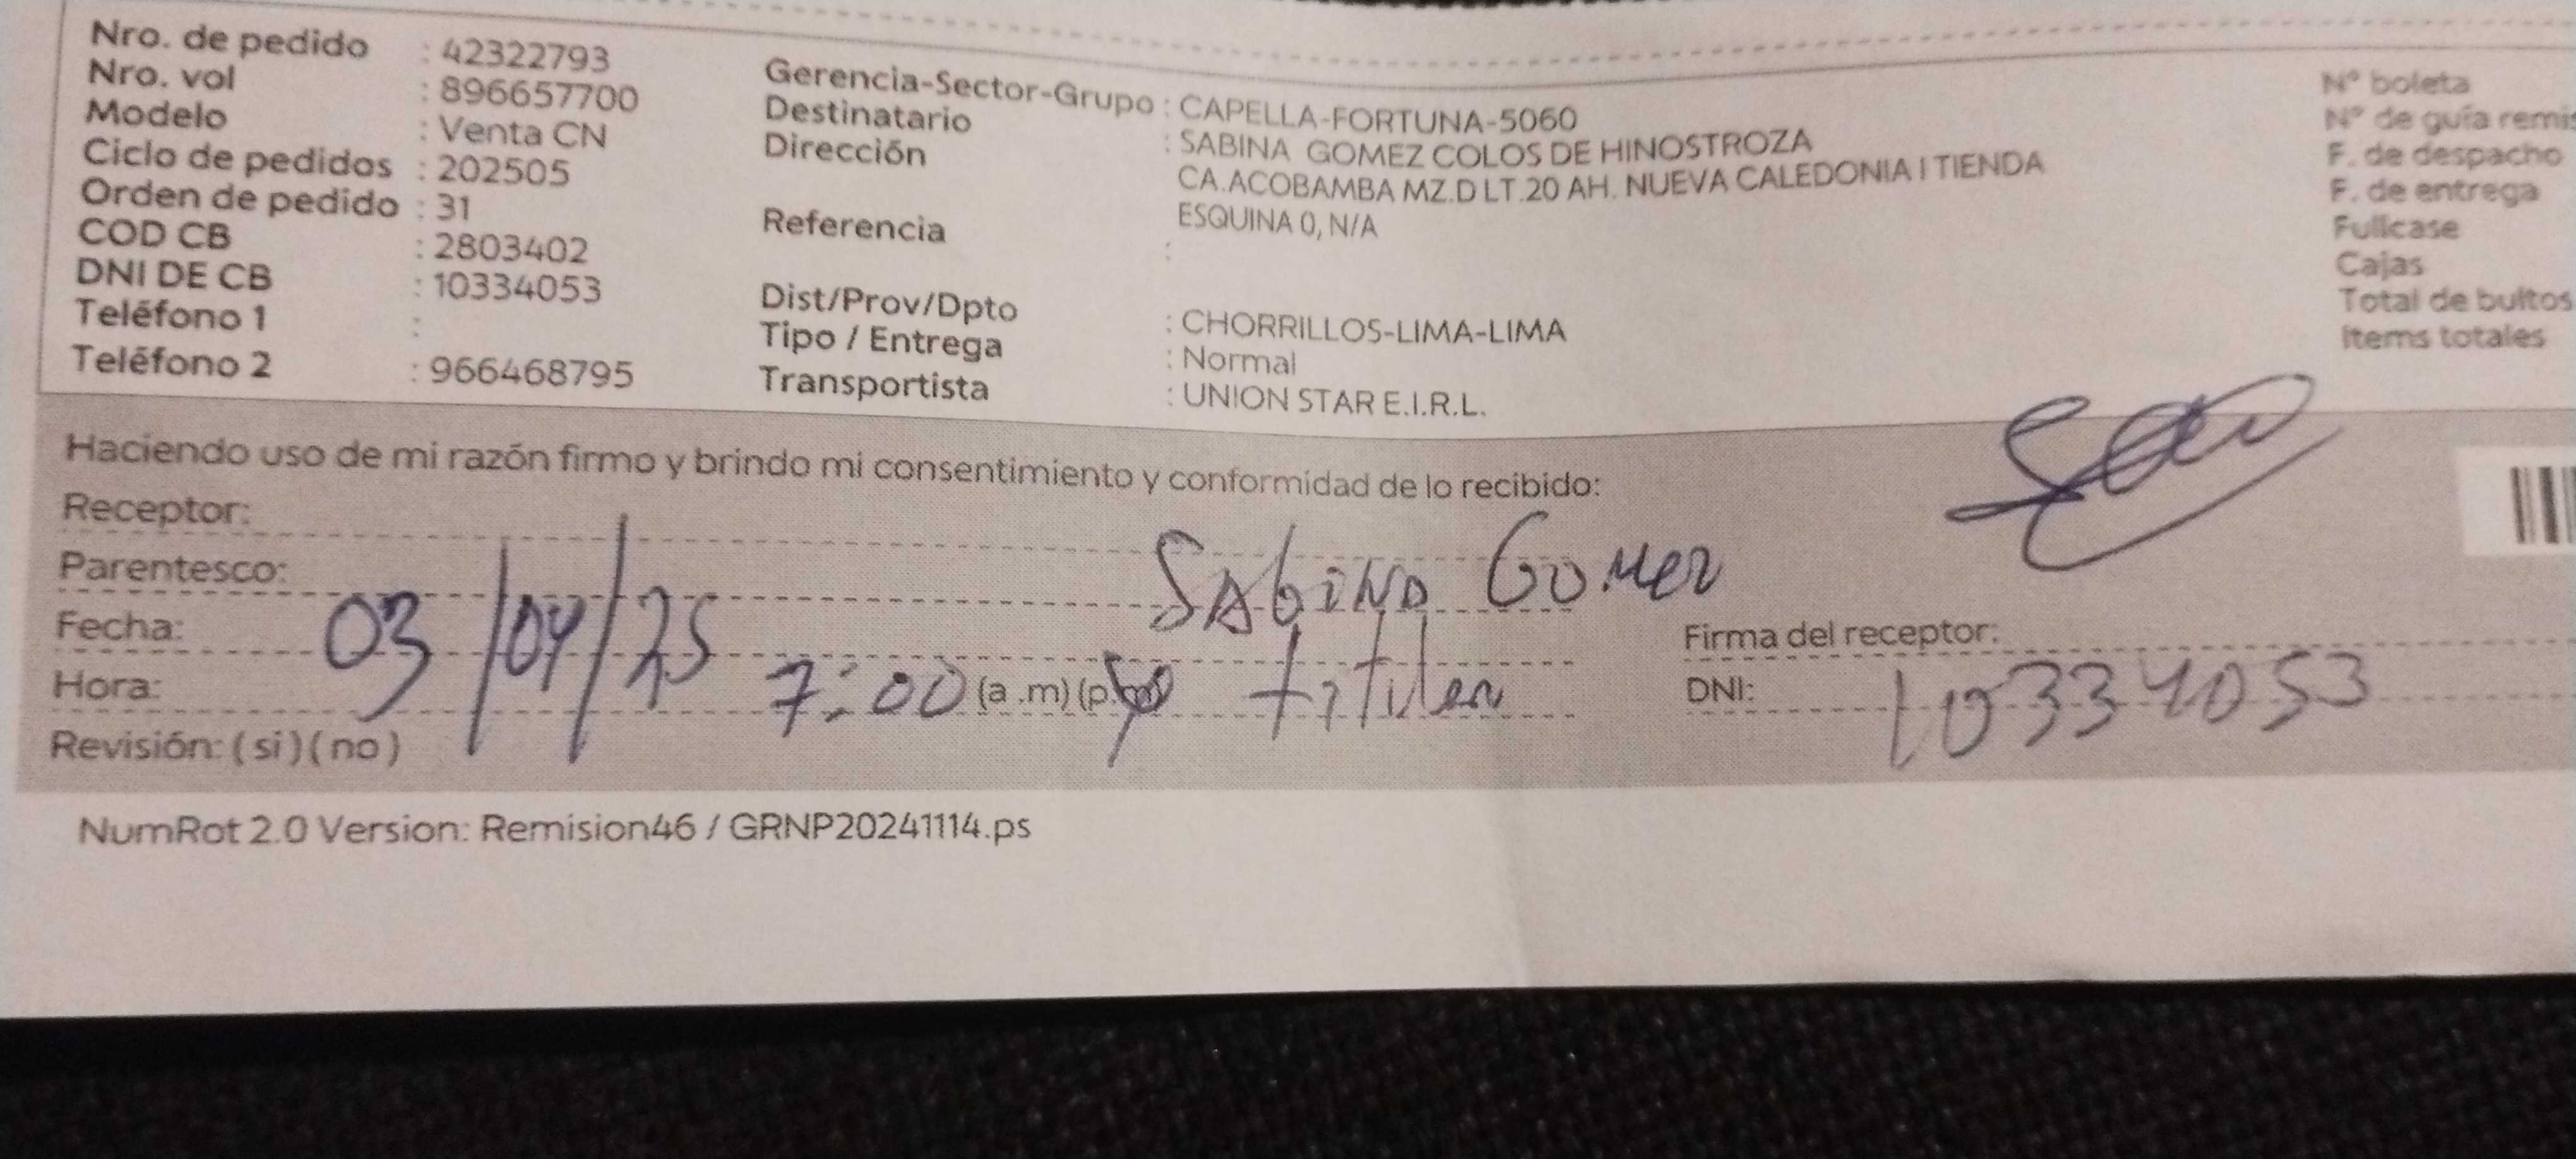 Nro. de pedido : 42322793
Nro. vol : 896657700
Modelo : Venta CN
Ciclo de pedidos : 202505
Orden de pedido : 31
COD CB : 2803402
DNI DE CB : 10334053
Teléfono 1 :
Teléfono 2 : 966468795
Gerencia-Sector-Grupo : CAPELLA-FORTUNA-5060
Destinatario : SABINA GOMEZ COLOS DE HINOSTROZA
Dirección CA.ACOBAMBA MZ.D LT.20 AH. NUEVA CALEDONIA I TIENDA
ESQUINA 0, N/A
Referencia :
Dist/Prov/Dpto : CHORRILLOS-LIMA-LIMA
Tipo / Entrega : Normal
Transportista : UNION STAR E.I.R.L.
N° boleta
N° de guía remis
F. de despacho
F. de entrega
Fullcase
Cajas
Total de bultos
Items totales
Haciendo uso de mi razón firmo y brindo mi consentimiento y conformidad de lo recibido:
Receptor: Sabina Gomez
Parentesco: titular
Fecha: 03/04/25
Hora: 7:00 (a .m) (p.m)
Revisión: (si) (no)
Firma del receptor:
DNI: 10334053
NumRot 2.0 Version: Remision46 / GRNP20241114.ps